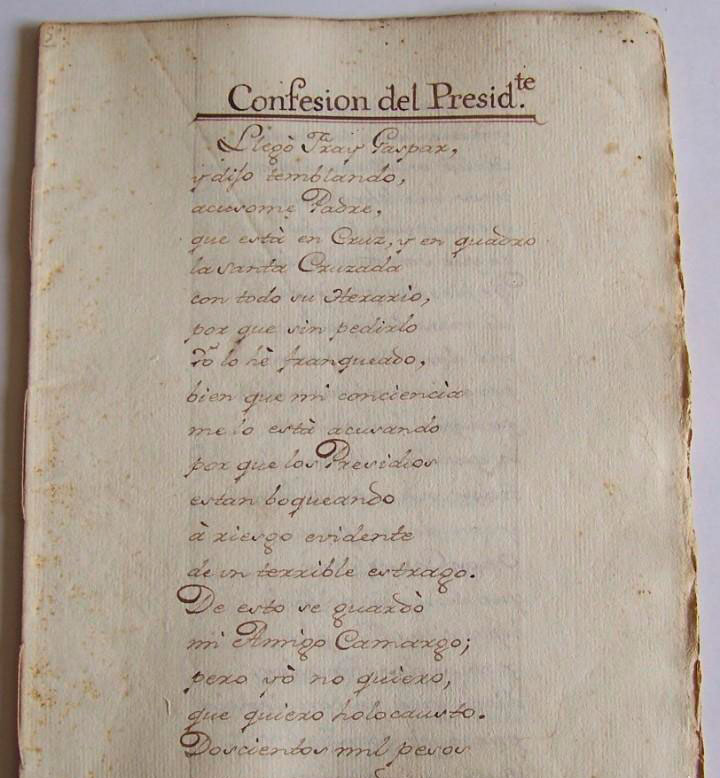 Confesion del Presid.te
Llegò Fray Gaspar,
y dijo temblando,
acusome Padre,
que està en Cruz, y en quadro
la santa Cruzada
con todo su Herario,
por que sin pedirlo
Yo lo hè franqueado,
bien que mi conciencia
me lo està acusando
por que los Presidios
estan boqueando
à riesgo evidente
de un terrible estrago.
De esto se guardò
mi Amigo Camargo;
pero yò no quiero,
que quiero holocausto.
Doscientos mil pesos